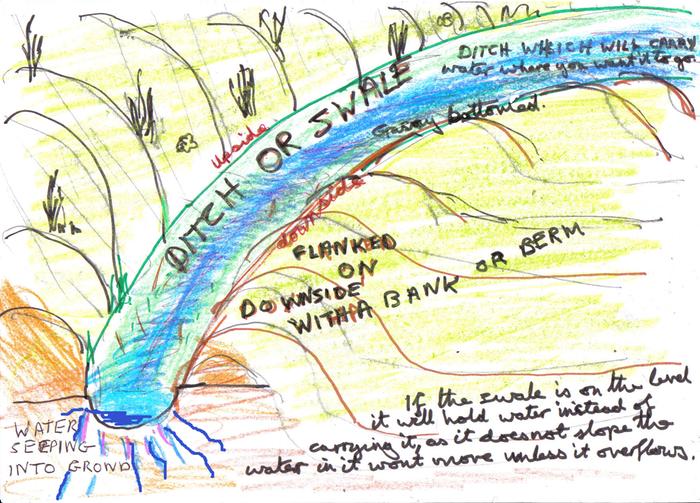 DITCH WHEICH WILL CARRY
water where you want it to go.
upside
DITCH OR SWALE
bottomed.
downside
FLANKED
ON
DOWNSIDE
WITH A BANK OR BERM
If the swale is on the level
it will hold water instead of
carrying it, as it does not slope the
water in it wont move unless it overflows.
WATER
SEEPING
INTO GROND